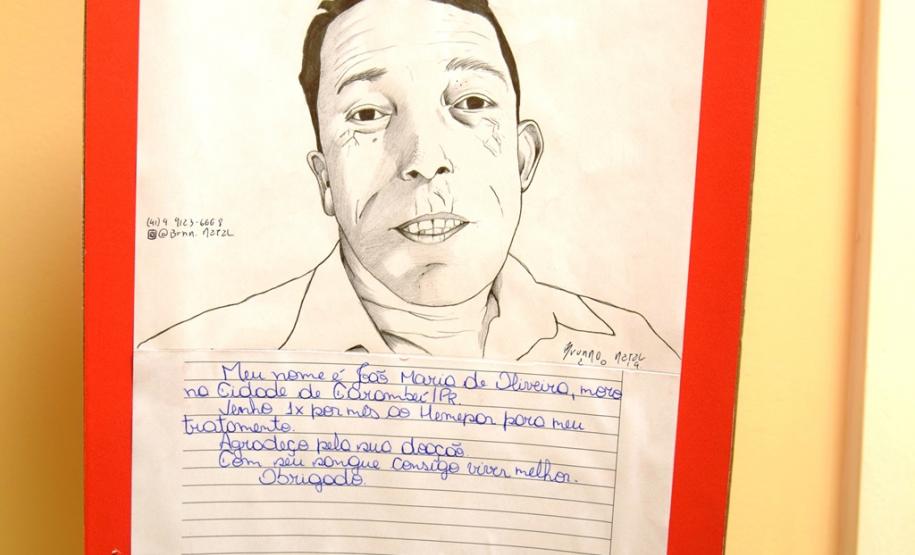 (41) 9 9123-6668
@Brnn.Netzl
Brunno Netzl
Meu nome é João Maria de Oliveira, moro
na Cidade de Carambeí/PR.
Venho 1x por mês ao Hemepar para meu
tratamento.
Agradeço pela sua doação
Com seu sangue consigo viver melhor.
Obrigado.